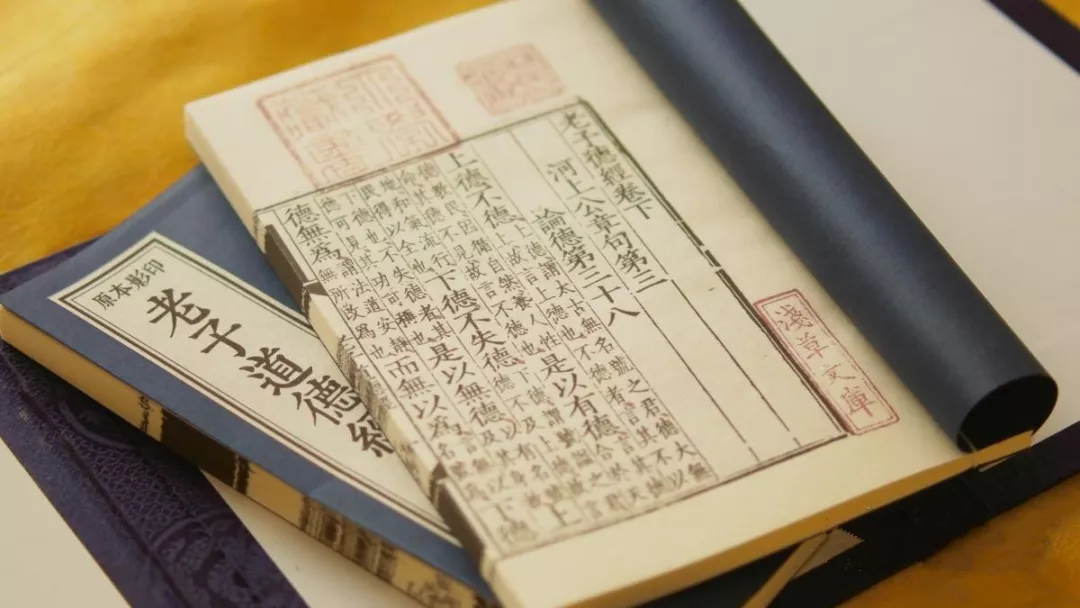 老子德經卷下
河上公章句第三
論德第三十八
上德不德上德謂太古無名號之君德大無上故言上德也不德者言其不以
德教民因循自然養人性命其德不見故言不德也是以有德言其德合於天
地和氣流行民德以全也下德不失德下德謂號謚之君德不及上德故言
德可見其功可稱也是以無德以有名號及其身故上
德無為謂法道安靜無所改為也而無以為下德
淺草文庫
原本影印
老子道德經